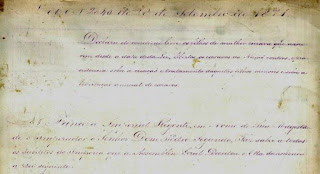 Lei Nº 2040 de 28 de Setembro de 1871
Declara de condição livre os filhos de mulher escrava que nasce-
rem desde a data desta lei, libertos os escravos da Nação e outros, e
providencia sobre a criação e tratamento daquelles filhos menores e sobre a
libertação annual de escravos.
A Princeza Imperial Regente, em nome de Sua Magestade
o Imperador o Senhor Dom Pedro Segundo, Faz saber a todos
os subditos do Imperio que a Assembléa Geral Decretou e Ella Sanccionou
a Lei seguinte